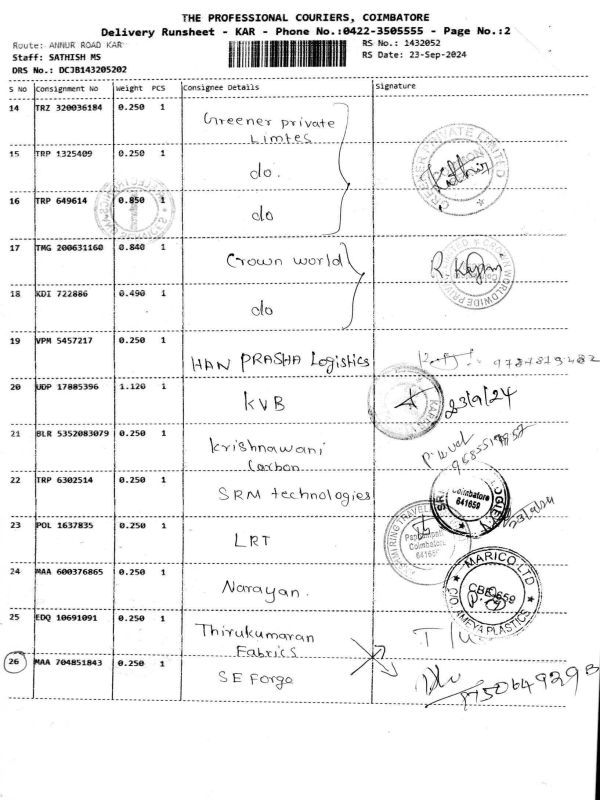 THE PROFESSIONAL COURIERS, COIMBATORE
Delivery Runsheet - KAR - Phone No.:0422-3505555 - Page No.:2
Route: ANNUR ROAD KAR
RS No.: 1432052
Staff: SATHISH MS
RS Date: 23-Sep-2024
DRS No.: DCJB143205202
S No Consignment No Weight PCS Consignee Details Signature
14 TRZ 320036184 0.250 1 Greener private
Limtes
15 TRP 1325409 0.250 1 do.
GREENER PRIVATE LIMITED
16 TRP 649614 0.850 1 do
17 TMG 200631160 0.840 1 Crown world
R.
CROWN WORLDWIDE
18 KDI 722886 0.490 1 do
19 VPM 5457217 0.250 1 HAN PRASHA Logistics
20 UDP 17885396 1.120 1 KVB 23/9/24
21 BLR 5352083079 0.250 1 Krishnawani
Carbon
22 TRP 6302514 0.250 1 SRM technologies
Coimbatore
641659
23/9/24
23 POL 1637835 0.250 1 LRT
Coimbatore
24 MAA 600376865 0.250 1 Narayan.
MARICO LTD
C/O. AMEYA PLASTICS
25 EDQ 10691091 0.250 1 Thirukumaran
Fabrics
26 MAA 704851843 0.250 1 SE Forge